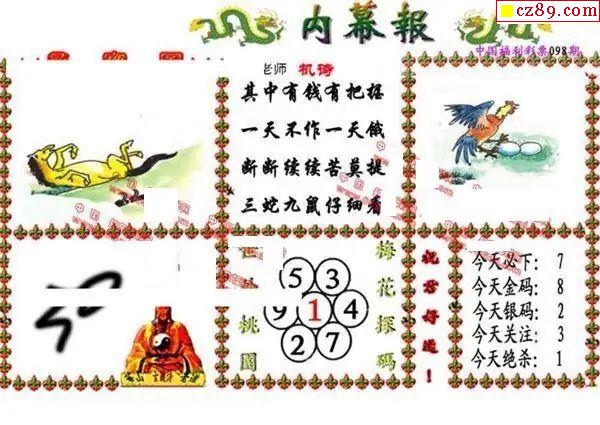 cz89.com
内幕報
中国福利彩票098期
老师 机诗
其中有钱有把握
一天不作一天饿
断断续续苦莫提
三蛇九鼠仔细看
桃圆
梅花探碼
5 3
9 1 4
2 7
祝君好运!
今天必下: 7
今天金码: 8
今天银码: 2
今天关注: 3
今天绝杀: 1